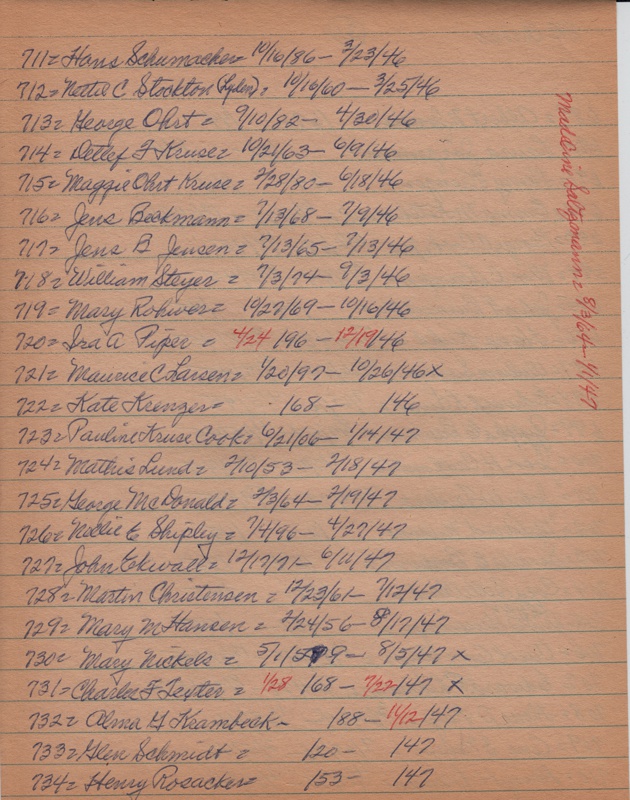 711= Hans Schumacher= 10/16/86- 3/23/46
712= Nettie C Stockton (Lyden)= 10/16/60- 3/25/46
713= George Ohrt= 9/10/82- 4/30/46
714= Detlef F Kruse= 10/21/63- 6/9/46
715= Maggie Ohrt Kruse= 2/28/80- 6/18/46
716= Jens Beckmann= 7/13/68- 7/9/46
717= Jens B Jensen= 7/13/65- 7/13/46
718= William Steyer= 7/3/74- 9/3/46
719= Mary Rohwer= 10/27/69- 10/16/46
720= Ira A Piper= 4/24 196- 12/19/46
721= Maurice C Larsen= 1/20/97- 10/26/46 x
722= Kate Krenzer= 168- 146
723= Pauline Kruse Cook= 6/21/06- 1/14/47
724= Mathis Lund= 2/10/53- 2/18/47
725= George McDonald= 2/3/64- 2/19/47
726= Nellie E Shipley= 7/4/96- 4/27/47
727= John Ekwall= 12/17/71- 6/11/47
728= Martin Christensen= 12/23/61- 7/12/47
729= Mary M Hansen= 2/24/56- 8/17/47
730= Mary Nickels= 5/1/59- 8/5/47 x
731= Charles F Teyter= 1/28 168- 7/22/147 x
732= Alma G Krambeck- 188- 147
733= Glen Schmidt= 120- 147
734= Henry Rosacker= 153- 147
Madline Saltzmann= 8/3/64- 1/1/47